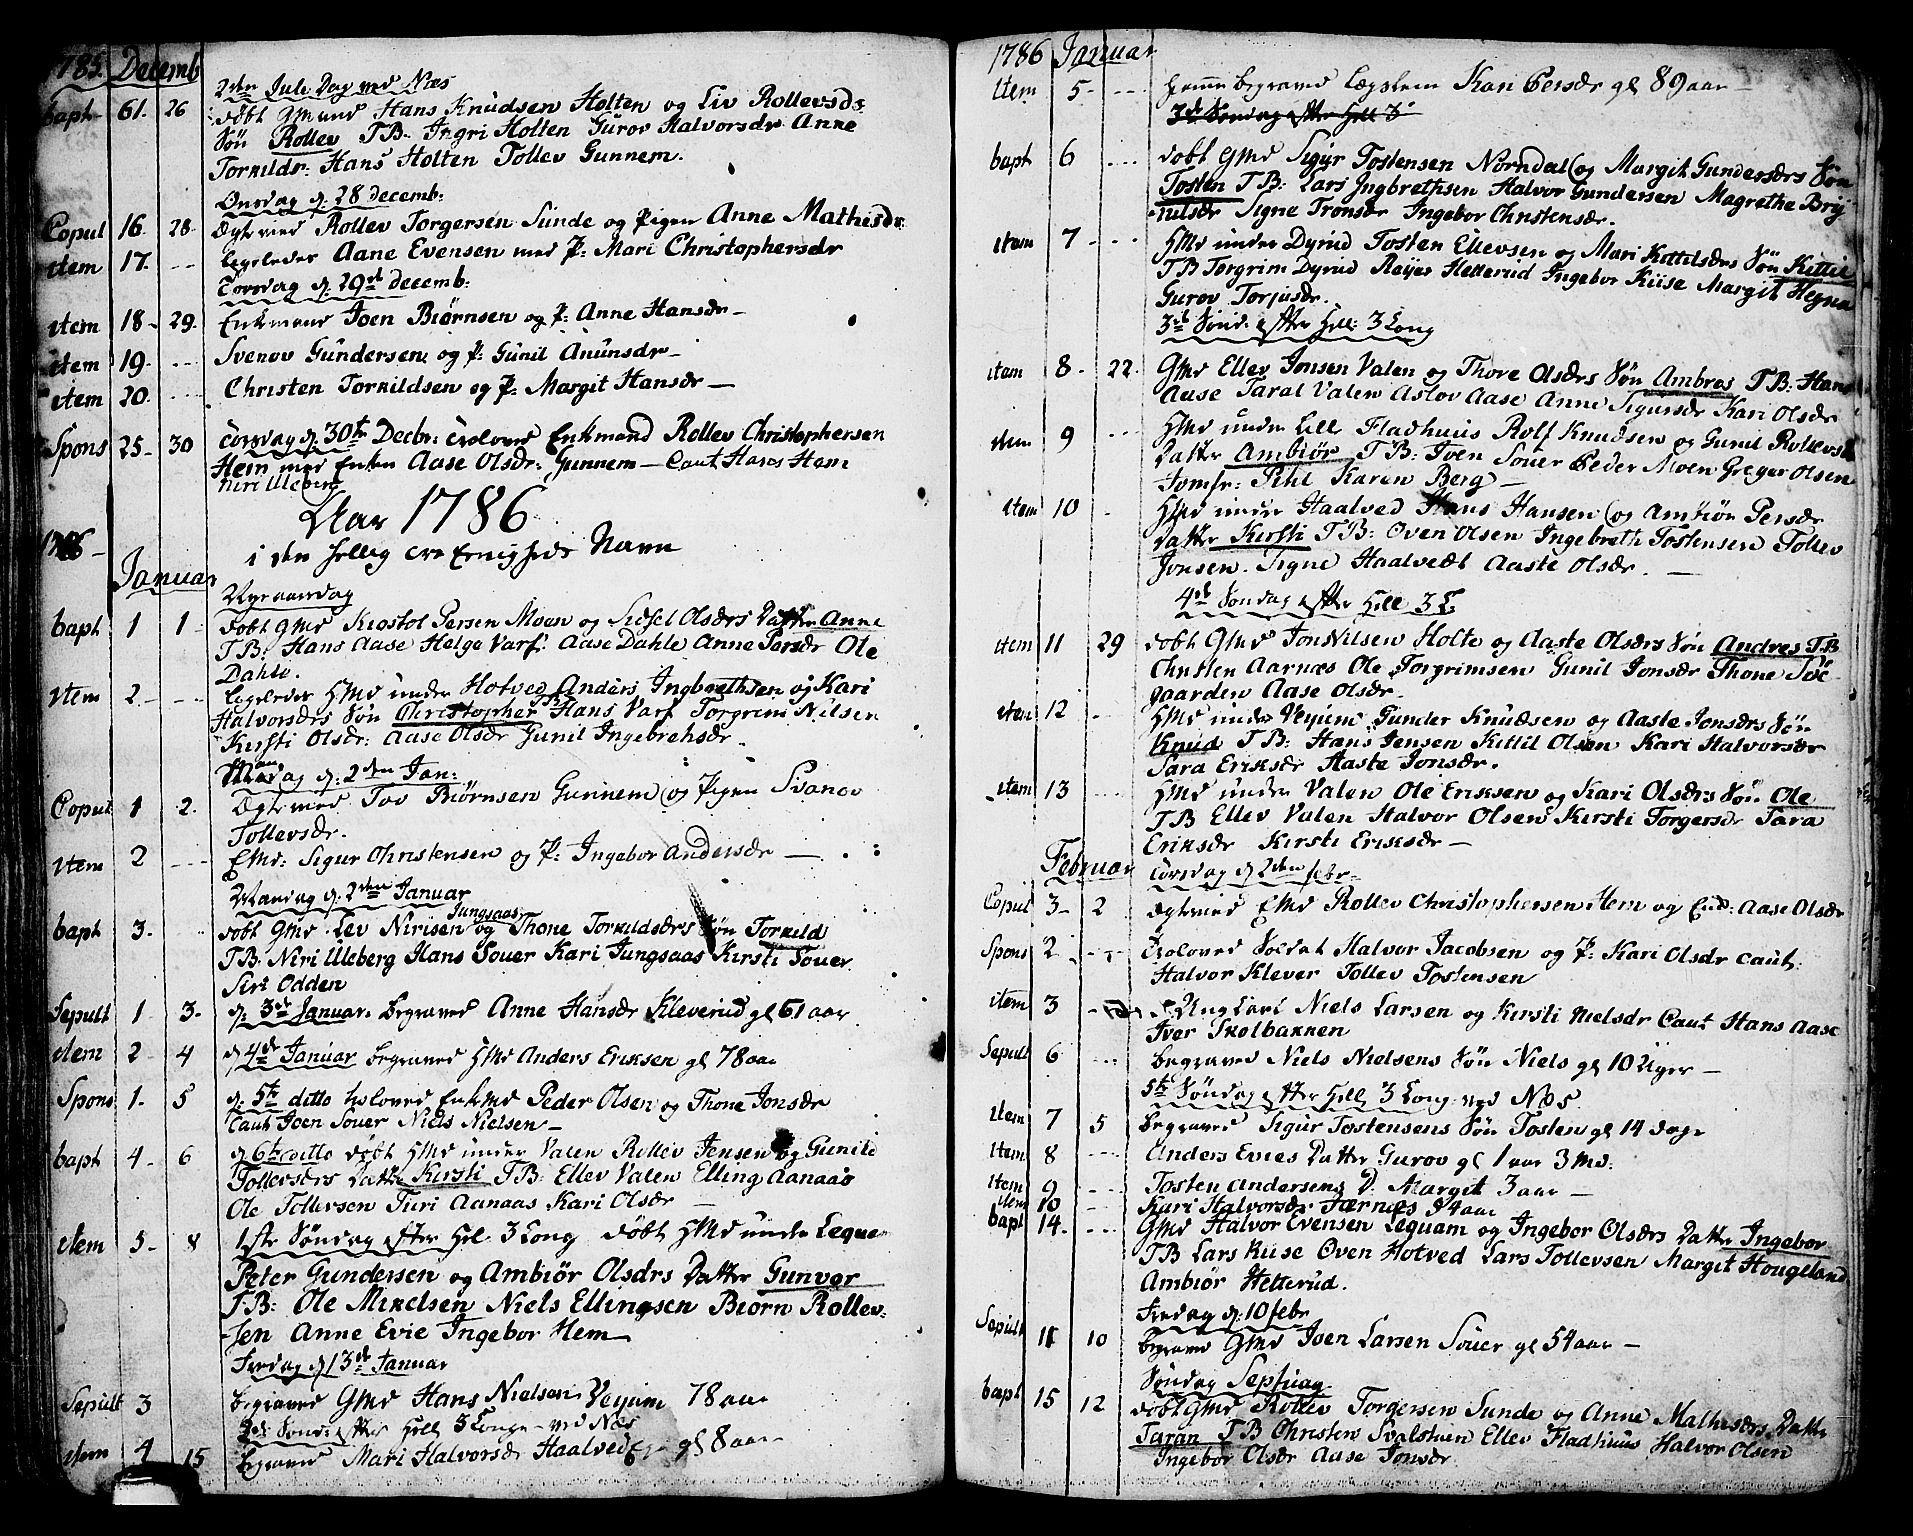 1785. Decemb
2den Jule Dag ved Næs
bapt 61. 26 døbt Gmand Hans Knudsen Holten og Liv Rollevsdr
Søn Rollev TB. Ingri Holten Gurov Halvorsdr Anne
Torkildr: Hans Holten Tollev Gunnem.
Onsdag d. 28 decemb:
Copul 16. 28. Ægteviet Rollev Torgersen Sunde og Pigen Anne Mathisdr
item 17. --- Ligeledes Aane Evensen med P: Mari Christophersdr
Torsdag d: 29de decemb:
item 18 - 29. Enkmand Joen Biørnsen og P: Anne Hansdr -
item 19. --- Svenov Gundersen og P: Gunil Anunsdr -
item 20. --- Christen Torkildsen og P: Margit Hansdr -
Spons 25 - 30 Torsdag d. 30te Decbr: trolovet Enkmand Rollev Christophersen
Hem med Enken Aase Olsdr: Gunnem - Caut Hans Hem
Niri Uleberg
Aar 1786
1786 - i den hellig Treenigheds Navn
Januar
Nyeaarsdag
bapt 1 1 - døbt Gmd Kiostol Persen Moen og Sidsel Olsdrs Datter Anne
TB: Hans Aase Helge Varf. Aase Dahle Anne Persdr Ole
Dahle.
item 2 - --- Ligeledes Hmd under Hotved Anders Ingbrethsen og Kari
Halvorsdrs Søn Christopher TB Hans Varf Torgrim Nilsen
Kirsti Olsdr: Aase Olsdr Gunil Ingebrehsdr.
Mandag d: 2den Jan:
Copul 1 2. Ægteviet Tov Biørnsen Gunnem og Pigen Svanov
Tollevsdr.
item 2 --- Emd: Sigur Christensen og P: Ingebor Andersdr -
Mandag d: 2den Januar
Jungsaas
bapt 3. døbt Gmd Lev Nirisen og Thone Torkildsdrs Søn Torkild
TB. Niri Uleberg Hans Souer Kari Jungsaas Kirsti Souer
Siri Odden
Sepult 1 - 3. d: 3de Januar. begravet Anne Hansdr Kleverud gl 61 aar
item 2 - 4 d 4de Januar begravet Hmd Anders Eriksen gl 78 aar
Spons 1 - 5 d. 5te ditto trolovet Enkmd Peder Olsen og Thone Jonsdr
Caut Joen Souer Niels Nielsen -
bapt 4 - 6 d 6te ditto døbt Hmd under Valen Rollev Jensen og Gunild
Tollevsdrs Datter Kirsti TB: Ellev Valen Elling Aanaas
Ole Tollevsen Turi Aanaas Kari Olsdr -
item 5 - 8 1ste Søndag efter Hel 3 Kong døbt Hmd under Legue
Peter Gundersen og Ambiør Olsdrs Datter Gunvor
TB: Ole Mikelsen Niels Ellingsen Biørn Rollev-
sen Anne Evie Ingebor Hem
Fredag d 13de Januar
Sepult 3 begravet Gmd Hans Nielsen Vejum 78 aar
2de Sønd. efter Hell 3 Konge - ved Næs
item 4 15 Begravet Mari Halvorsdr Haalved gl 8 aar -
1786 Januar
item 5 - --- begravet Lægslem Kari Persdr gl 89 aar -
3de Søndag efter Hell 3
bapt 6 --- døbt Gmd Sigur Tostensen Nørndal og Margit Gundersdrs Søn
Tosten TB: Lars Ingbrethsen Halvor Gundersen Magrethe Bry
nilsdr Signe Tronsdr Ingebor Christensdr.
item 7 - --- Hmd under Dyrud Tosten Ellevsen og Mari Kittilsdrs Søn Kittil
TB Torgrim Dyrud Reyer Hetterud Ingebor Kiise Margit Hegna
Gurov Torjusdr.
3de Sønd: efter Hell: 3 Kong
item 8 - 22. Gmd Ellev Jonsen Valen og Thore Olsdrs Søn Ambros TB: Hans
Aase Taral Valen Aslov Aase Anne Sigursdr Kari Olsdr
item 9 --- Hmd under Lille Fladhuus Rolf Knudsen og Gunil Rollevsd
Datter Ambiør TB: Joen Souer Peder Moen Greger Olsen
Jomfr: Pihl Karen Berg -
item 10 - Hmd under Haalved Hans Hansen og Ambiør Persdr
Datter Kirsti TB: Oven Olsen Ingebreth Tostensen Tollev
Jonsen. Signe Haalvedt Aaste Olsdr. -
4de Søndag efter Hell 3 K
item 11 29 døbt Gmd Jon Nilsen Holte og Aaste Olsdrs Søn Andres TB
Christen Aarnæs Ole Torgrimsen Gunil Jonsdr Thone Søe
gaarden Aase Olsdr -
item 12 - Hmd under Vejum Gunder Knudsen og Aaste Jonsdrs Søn
Knud TB: Hans Jensen Kittil Olsen Kari Halvorsdr
Sara Eriksdr Haste Jonsdr.
item 13 --- Hmd under Valen Ole Eriksen og Kari Olsdrs Søn Ole
TB Ellev Valen Halvor Olsen Kirsti Torgersdr Sara
Eriksdr Kirsti Eriksdr -
Februar Torsdag d 2den febr -
Copul 3 - 2 Ægteviet Emd Rollev Christophersen Hem og Enk: Aase Olsdr
Spons 2 --- Trolovet Soldat Halvor Jacobsen og P: Kari Olsdr Caut:
Halvor Klever Tollev Tostensen
item 3 Ung Karl Niels Larsen og Kirsti Nielsdr Caut Hans Aase
Iver Skolbakken
Sepult 6 --- Begravet Niels Nielsens Søn Niels gl 10 Uger -
5te Søndag efter Hell 3 Kong - ved Næs.
item 7 5 begravet Sigur Tostensens Søn Tosten gl 14 dage
item 8 --- Anders Evies Datter Gurov gl 1 aar 3 md:
item 9 --- Tosten Andersens D. Margit 3 aar -
item 10 --- Kari Halvorsdr Tærnæs 84 aar
bapt 14. --- Gmd Halvor Evensen Leguam og Ingebor Olsdrs Datter Ingebor
TB Lars Kiise Oven Hotved Lars Tollevsen Margit Hougeland
Ambiør Hetterud.
Fredag d: 10 febr
Sepult 11 10 begravet Gmd Joen Larsen Souer gl 54 aar -
Søndag Septuag.
bapt 15 12 døbt Gmd Rollev Torgersen Sunde og Anne Mathisdrs Datter
Taran TB Christen Svalstuen Ellev Fladhuus Halvor Olsen
Ingebor Olsdr Aase Jonsdr